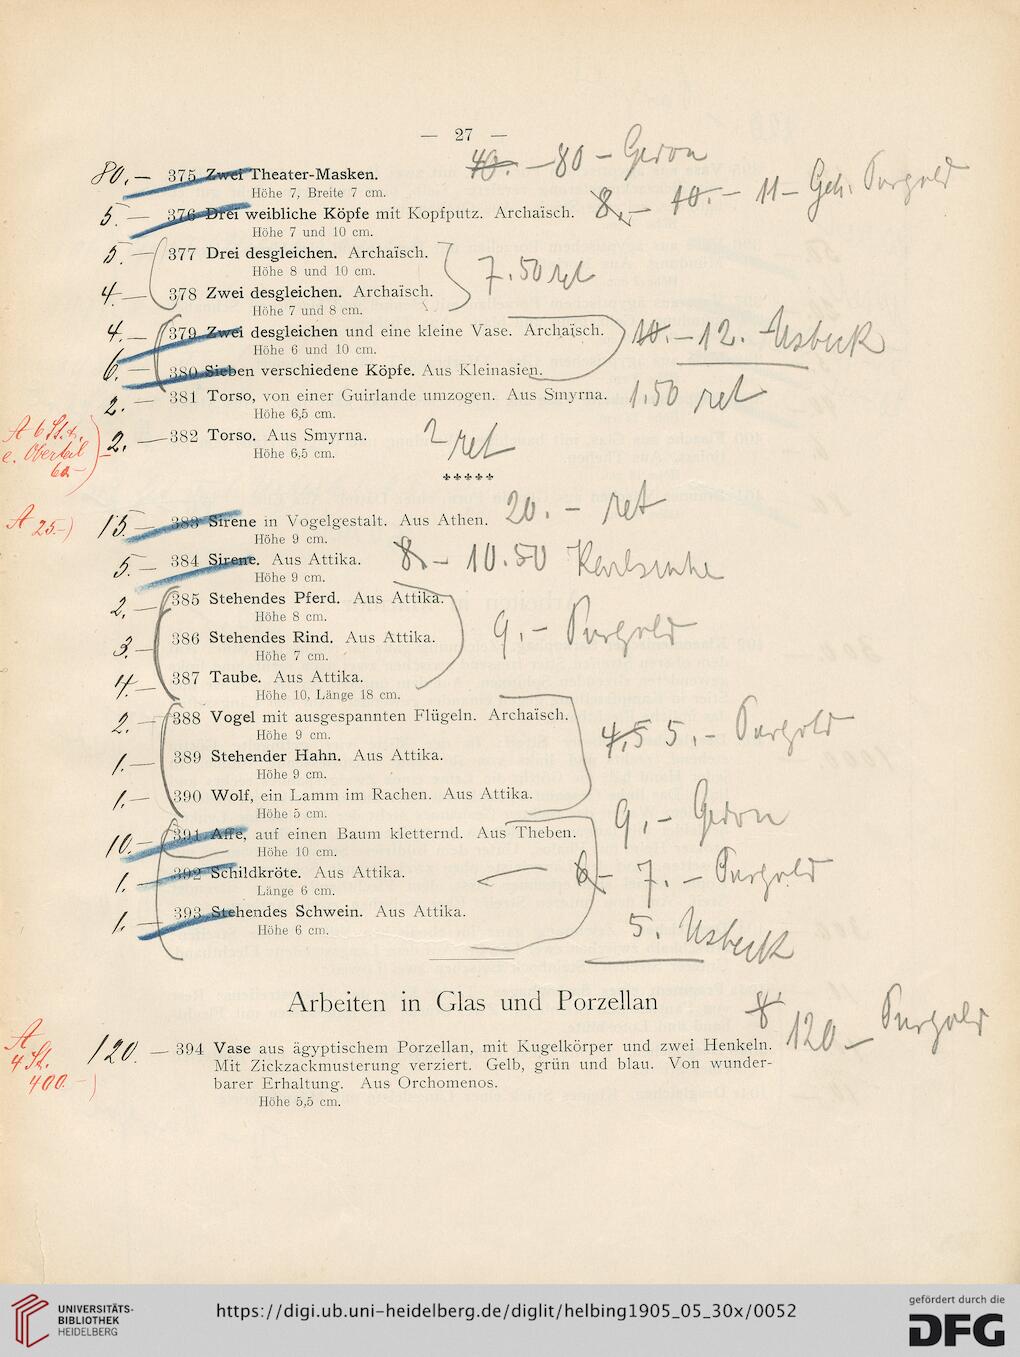 — 27 —
40.- — 80 — Gedon
80.— 375 Zwei Theater-Masken.
Höhe 7, Breite 7 cm.
8.— 10.— 11— Geh. Purgold
5.— 376 Drei weibliche Köpfe mit Kopfputz. Archaïsch.
Höhe 7 und 10 cm.
5.— 377 Drei desgleichen. Archaïsch.
Höhe 8 und 10 cm.
7.50 ret
4.— 378 Zwei desgleichen. Archaïsch.
Höhe 7 und 8 cm.
4.— 379 Zwei desgleichen und eine kleine Vase. Archaïsch. 10.— 12. Usbeck
Höhe 6 und 10 cm.
6.— 380 Sieben verschiedene Köpfe. Aus Kleinasien.
2.— 381 Torso, von einer Guirlande umzogen. Aus Smyrna. 1.50 ret
Höhe 6,5 cm.
A 6 St. u.
e. Oberteil
60.—
2.— 382 Torso. Aus Smyrna. 2 ret
Höhe 6,5 cm.
A 25.—)
15.— 383 Sirene in Vogelgestalt. Aus Athen. 20.— ret
Höhe 9 cm.
5.— 384 Sirene. Aus Attika. 8.— 10.50 Karlsruhe
Höhe 9 cm.
2.— 385 Stehendes Pferd. Aus Attika.
Höhe 8 cm.
9.— Purgold
3.— 386 Stehendes Rind. Aus Attika.
Höhe 7 cm.
4.— 387 Taube. Aus Attika.
Höhe 10, Länge 18 cm.
2.— 388 Vogel mit ausgespannten Flügeln. Archaïsch.
Höhe 9 cm.
4,5 5.— Purgold
1.— 389 Stehender Hahn. Aus Attika.
Höhe 9 cm.
1.— 390 Wolf, ein Lamm im Rachen. Aus Attika.
Höhe 5 cm.
9.— Gedon
10.— 391 Affe, auf einen Baum kletternd. Aus Theben.
Höhe 10 cm.
1.— 392 Schildkröte. Aus Attika. 6— 7.— Purgold
Länge 6 cm.
1.— 393 Stehendes Schwein. Aus Attika. 5. Usbeck
Höhe 6 cm.
Arbeiten in Glas und Porzellan
8 120— Purgold
A
4 St.
400.—)
120.— 394 Vase aus ägyptischem Porzellan, mit Kugelkörper und zwei Henkeln.
Mit Zickzackmusterung verziert. Gelb, grün und blau. Von wunder-
barer Erhaltung. Aus Orchomenos.
Höhe 5,5 cm.
UNIVERSITÄTS-
BIBLIOTHEK
HEIDELBERG
https://digi.ub.uni-heidelberg.de/diglit/helbing1905_05_30x/0052
gefördert durch die
DFG